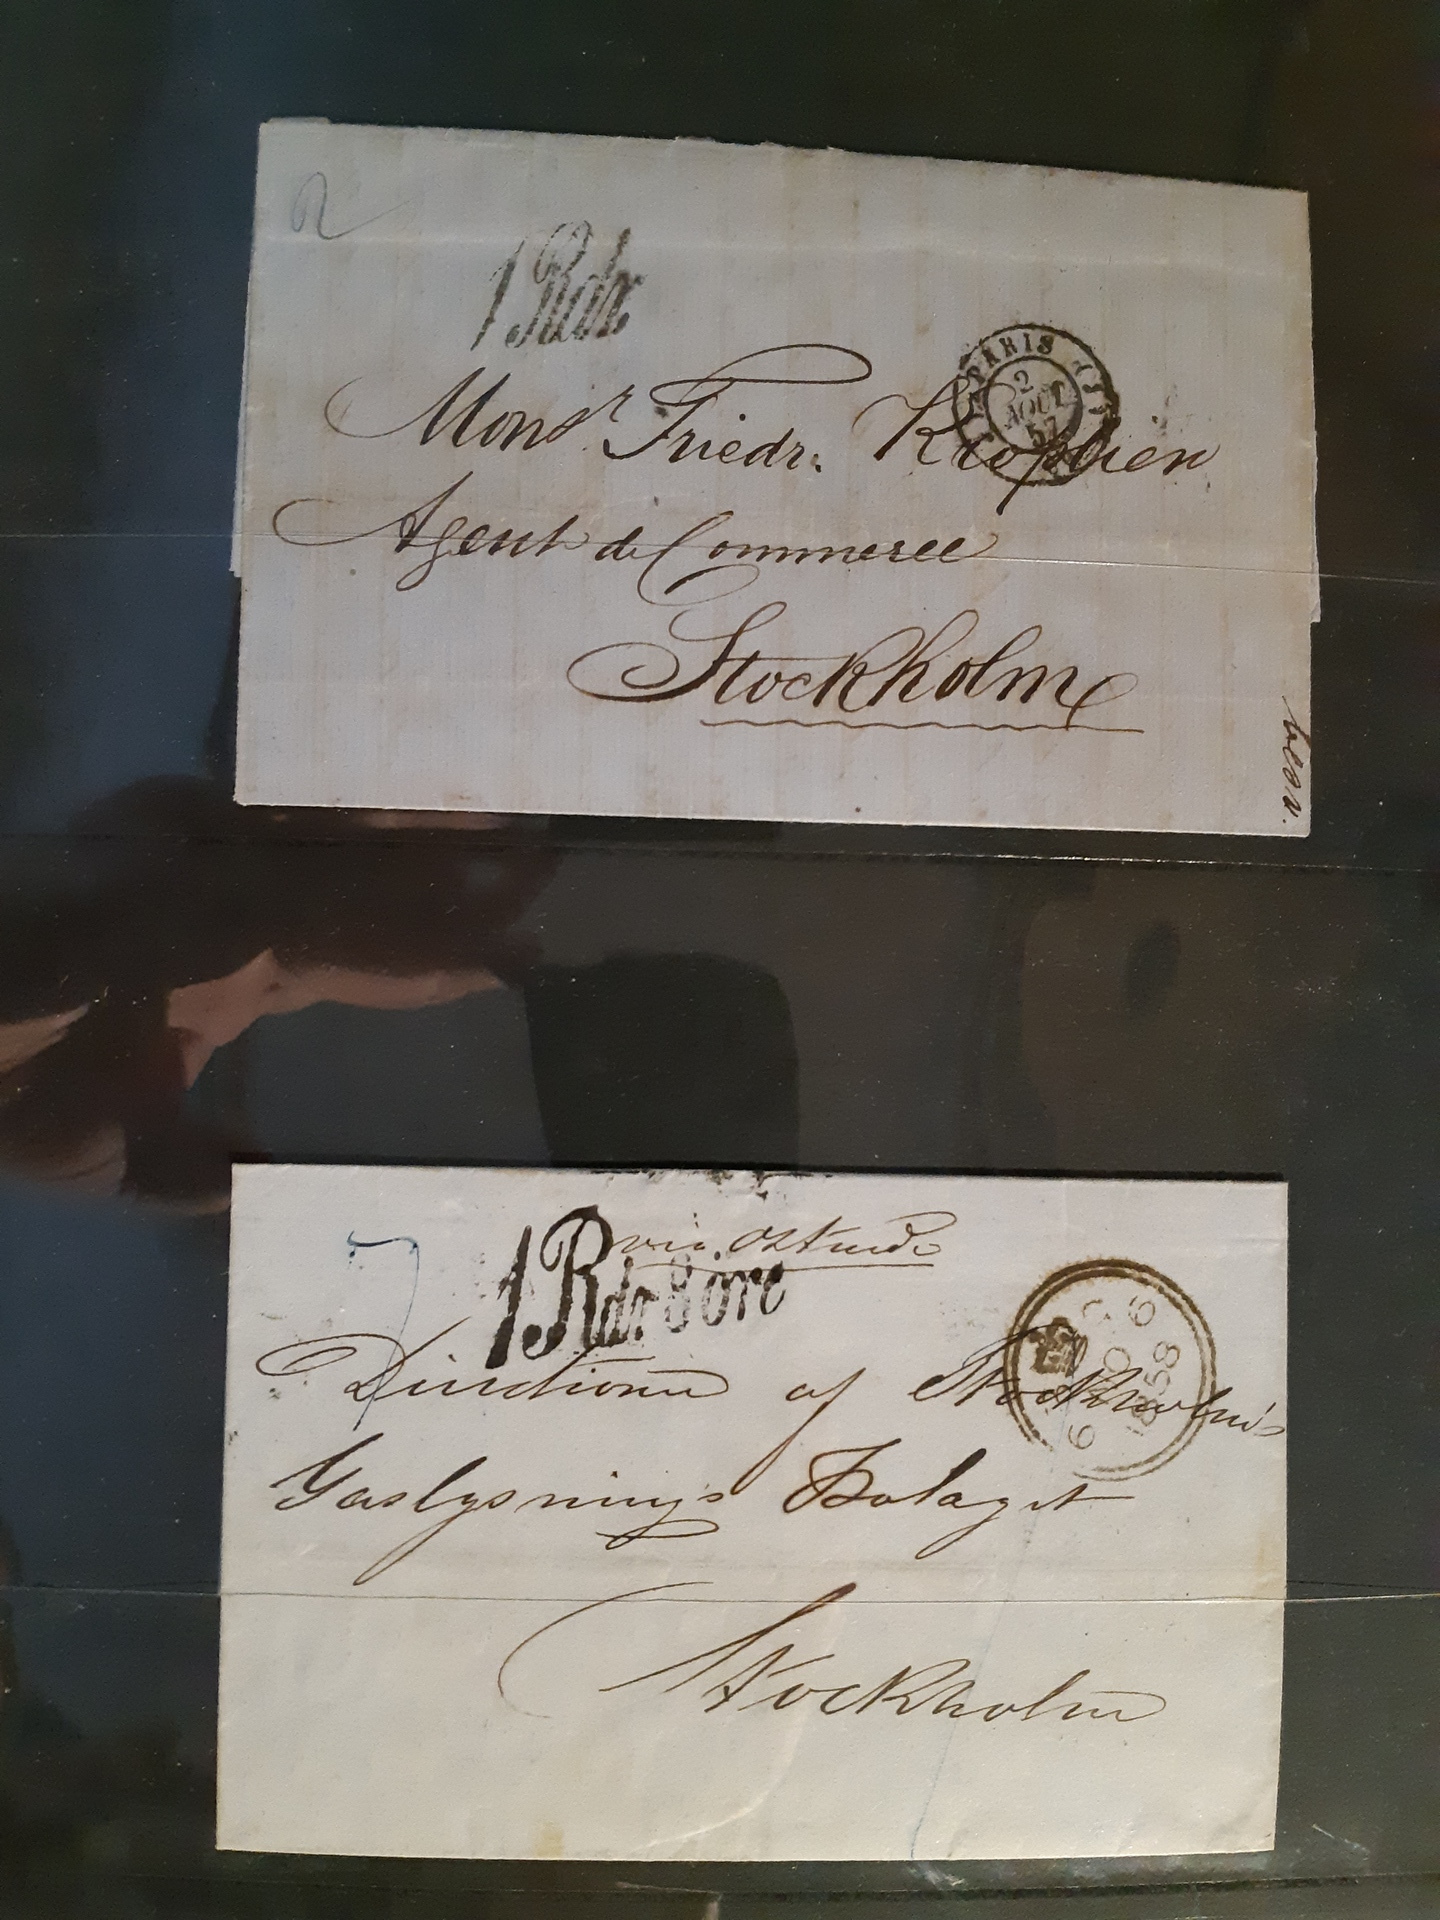 2
1 Rdr.
PARIS
2
AOUT
57
Monsr. Friedr.
Agent de Commerce
Stockholm
via Ostende
1 Rdr 8 öre
7
6
1858
6
Directionen af Stockholms
Gaslysnings Bolaget
Stockholm